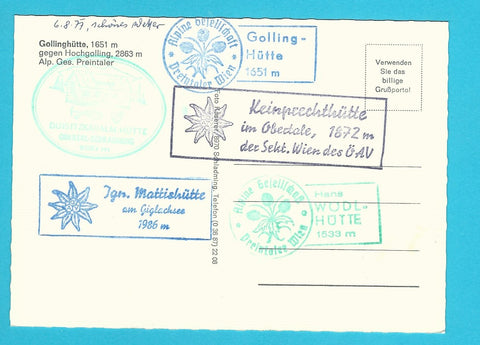 6.8.77, schönes Wetter
Gollinghütte, 1651 m
gegen Hochgolling, 2863 m
Alp. Ges. Preintaler
Alpine Gesellschaft
Preintaler Wien
Golling-
Hütte
1651 m
Verwenden
Sie das
billige
Grußporto!
Keinprechthütte
im Obertale, 1872 m
der Sekt. Wien des Ö.A.V
HÜTTE
Ign. Mattishütte
am Giglachsee
1986 m
Schladming, Telefon (0 36 87) 22 08
Alpine Gesellschaft
Preintaler Wien
Hans
WÖDL-
HÜTTE
1533 m